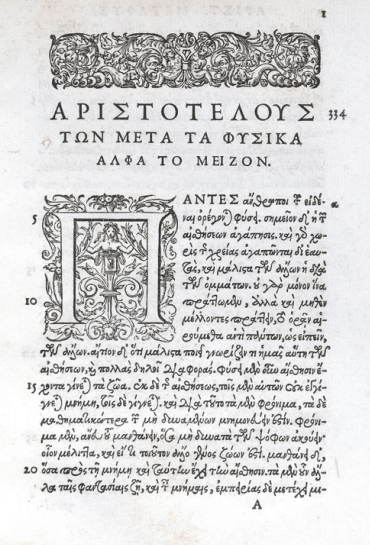 1
ΑΡΙΣΤΟΤΕΛΟΥΣ 334
ΤΩΝ ΜΕΤΑ ΤΑ ΦΥΣΙΚΑ
ΑΛΦΑ ΤΟ ΜΕΙΖΟΝ.
ΠΑΝΤΕΣ ἄνθρωποι τοῦ εἰδέ-
5 ναι ὀρέγονται φύσει. σημεῖον δὲ ἡ τῶν
αἰσθήσεων ἀγάπησις. καὶ γὰρ χω-
ρὶς τῆς χρείας ἀγαπῶνται δι' ἑαυ-
τάς, καὶ μάλιστα τῶν ἄλλων ἡ διὰ
τῶν ὀμμάτων. οὐ γὰρ μόνον ἵνα
10 πράττωμεν, ἀλλὰ καὶ μηθὲν
μέλλοντες πράττειν, τὸ ὁρᾶν αἱ-
ρούμεθα ἀντὶ πάντων, ὡς εἰπεῖν,
τῶν ἄλλων. αἴτιον δὲ ὅτι μάλιστα ποιεῖ γνωρίζειν τι ἡμᾶς αὕτη τῶν
αἰσθήσεων, καὶ πολλὰς δηλοῖ διαφοράς. φύσει μὲν οὖν αἴσθησιν ἔ-
15 χοντα γίνεται τὰ ζῷα. ἐκ δὲ τῆς αἰσθήσεως, τοῖς μὲν αὐτῶν οὐκ ἐγγί-
νεται μνήμη, τοῖς δὲ γίγνεται. καὶ διὰ τοῦτο τὰ μὲν φρόνιμα, τὰ δὲ
μαθηματικώτερα τῶν μὴ δυναμένων μνημονεύειν ἐστίν. φρόνι-
μα μὲν, ἄνευ τοῦ μανθάνειν, ὅσα μὴ δύναται τῶν ψόφων ἀκούειν·
οἷον μέλιττα, καὶ εἴ τι τοιοῦτον ἄλλο γένος ζῴων ἐστί. μανθάνει δὲ,
20 ὅσα πρὸς τῇ μνήμῃ καὶ ταύτην ἔχει τὴν αἴσθησιν. τὰ μὲν οὖν ἄλ-
λα ταῖς φαντασίαις ζῇ, καὶ ταῖς μνήμαις, ἐμπειρίας δὲ μετέχει μι-
A